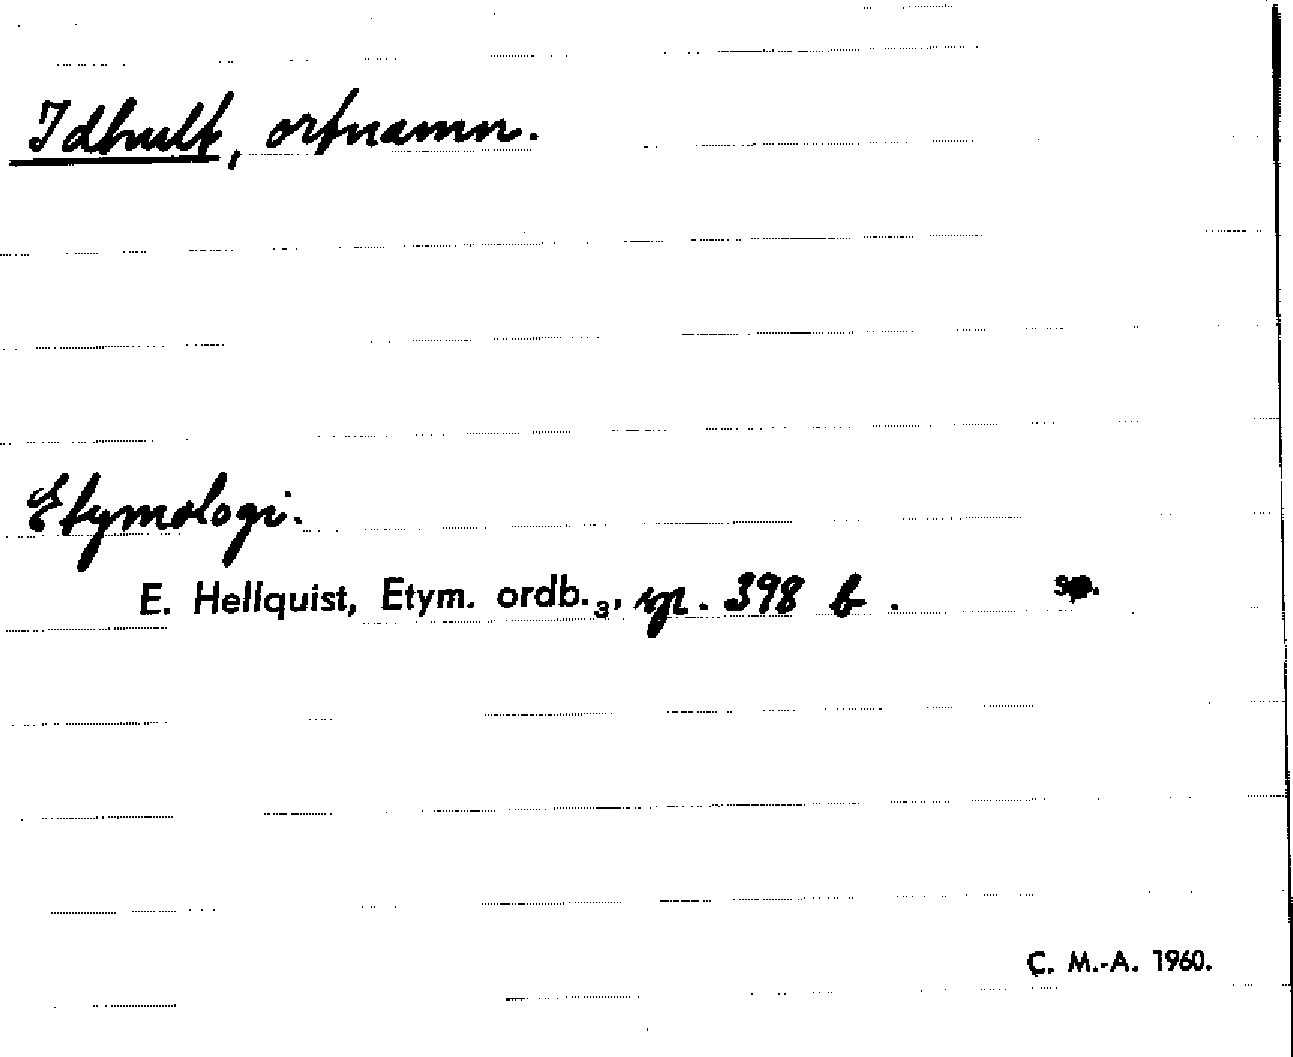 Idhult, ortnamn.
Etymologi.
E. Hellquist, Etym. ordb.₃, sp. 398 b.
C. M.-A. 1960.